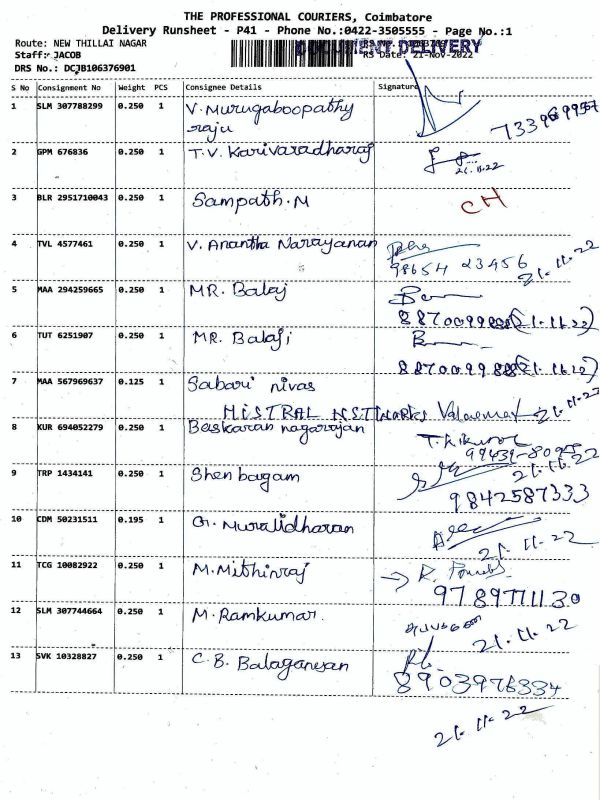 THE PROFESSIONAL COURIERS, Coimbatore
Delivery Runsheet - P41 - Phone No.:0422-3505555 - Page No.:1
Route: NEW THILLAI NAGAR
DOCUMENT DELIVERY
Staff: JACOB RS Date: 21-Nov-2022
DRS No.: DCJB106376901
S No Consignment No Weight PCS Consignee Details Signature
1 SLM 307788299 0.250 1 V. Murugaboopathy
raju
2 GPM 676836 0.250 1 T.V. Karivaradharaj
21.11.22
3 BLR 2951710043 0.250 1 Sampath.M CH
4 TVL 4577461 0.250 1 V. Anantha Narayanan
98654 23456 21.11.22
5 MAA 294259665 0.250 1 MR. Balaj
21.11.22
6 TUT 6251907 0.250 1 MR. Balaji
21.11.22
7 MAA 567969637 0.125 1 Sabari nivas
MISTRAL 21.11.22
8 KUR 694052279 0.250 1 Baskaran nagarajan
21.11.22
9 TRP 1434141 0.250 1 Shenbagam
9842587333
10 CDM 50231511 0.195 1 G. Muralidharan
21.11.22
11 TCG 10082922 0.250 1 M.Mithinraj
9789771130
12 SLM 307744664 0.250 1 M.Ramkumar.
21.11.22
13 SVK 10328827 0.250 1 C.B. Balaganesan
8903976334
21.11.22